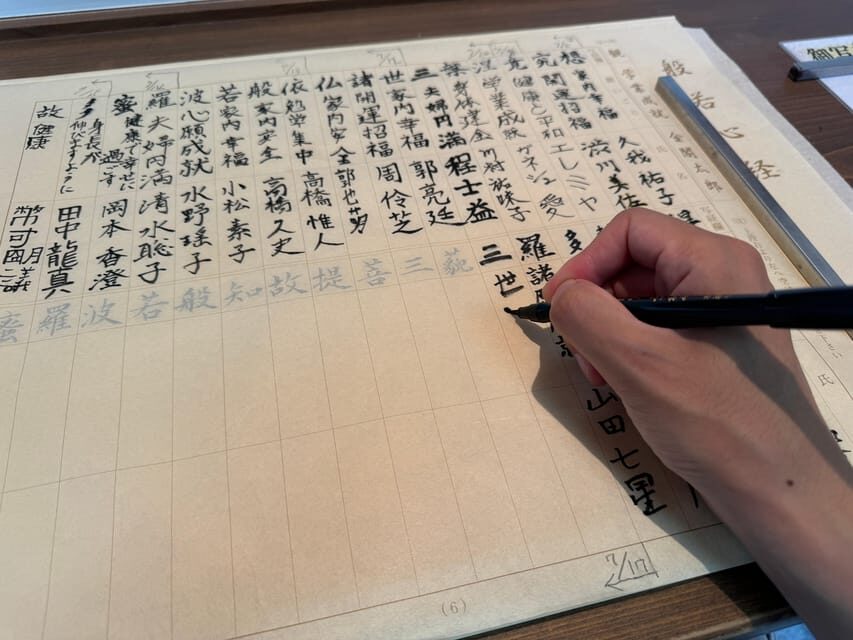 般若心経
観 学業成就 金閣太郎
想 家内幸福 久我祐子
究 開運招福 渋川美佐
竟 健康と平和 エレミヤ
涅 学業成就 愛
槃 身体健全
三 夫婦円満 程士益
世 家内幸福 郭亮廷
諸 開運招福 周伶芝
仏 家内安全
依 勉学集中 高橋惟人
般 家内安全 高橋久史
若 家内幸福 小松素子
波 心願成就 水野瑶子
羅 夫婦円満 清水聡子
蜜 健康で幸せに過ごす 岡本香澄
多 身長が伸びますように 田中龍真
故 健康
多
山田七星
羅 諸
三 世
藐
三
菩
提
故
知
般
若
波
羅
蜜
氏
7/17
(6)